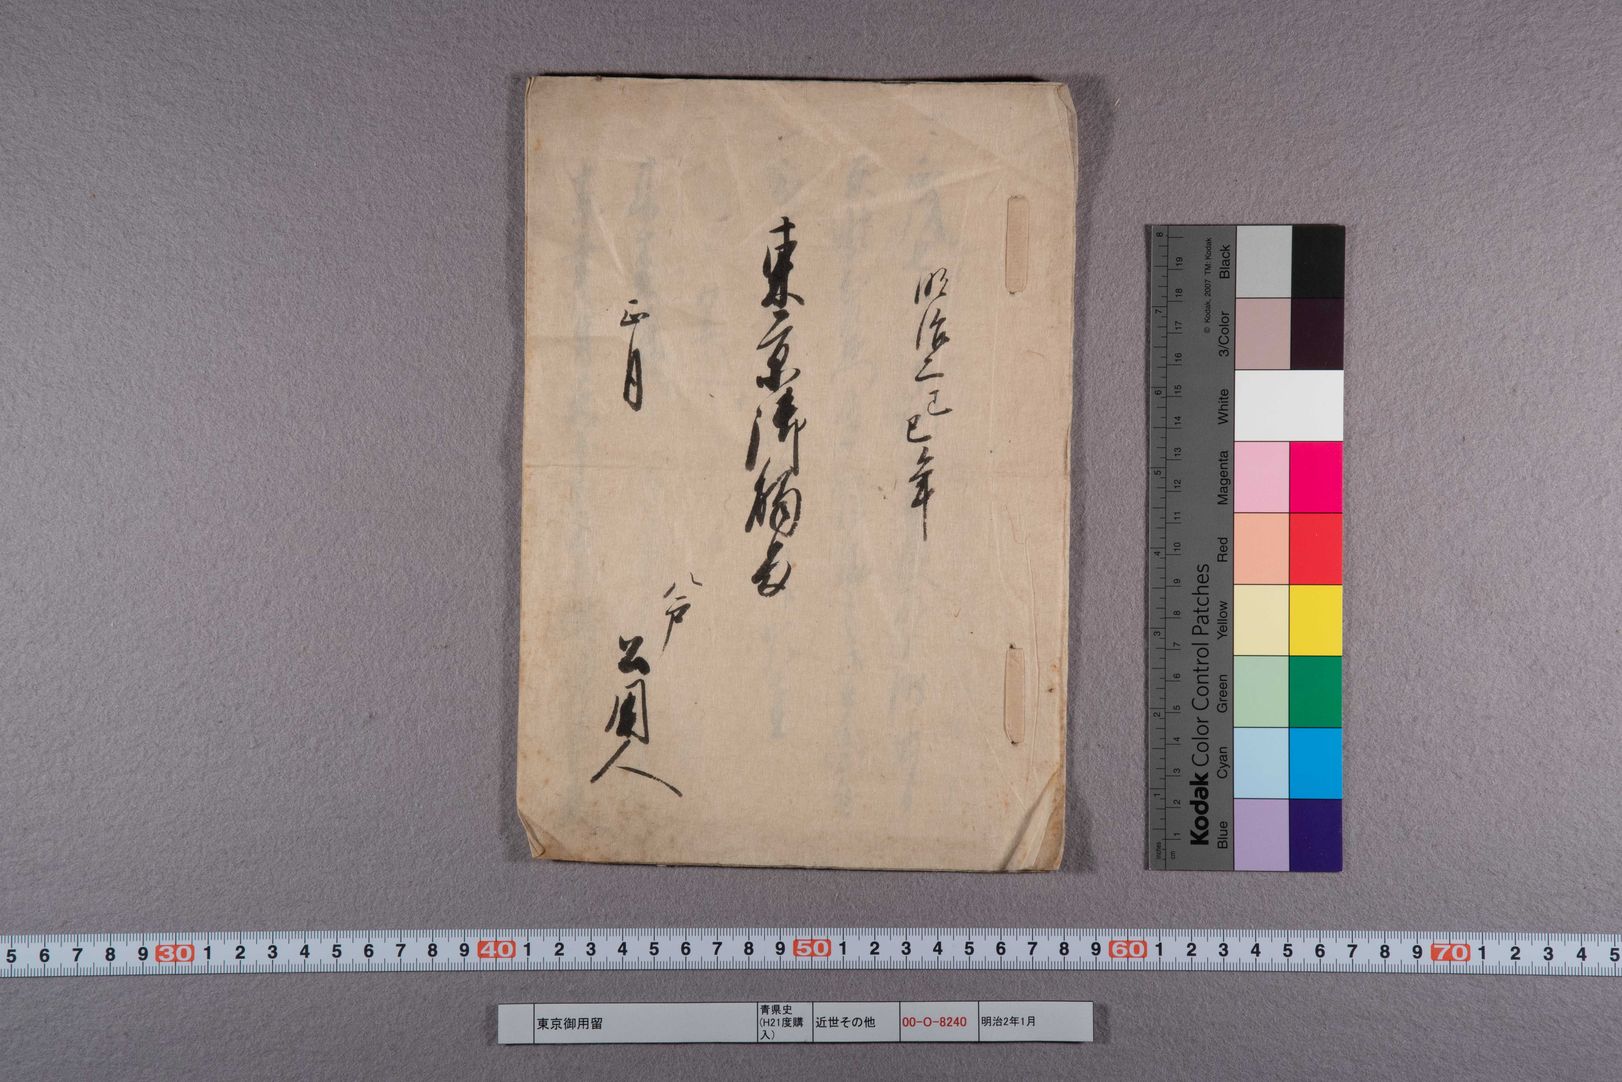 明治二己巳年
東京御觸留
正月
八戸
公用人
Kodak Color Control Patches
© Kodak, 2007 TM: Kodak
Blue Cyan Green Yellow Red Magenta White 3/Color Black
inches 1 2 3 4 5 6 7 8
cm 1 2 3 4 5 6 7 8 9 10 11 12 13 14 15 16 17 18 19
5 6 7 8 9 30 1 2 3 4 5 6 7 8 9 40 1 2 3 4 5 6 7 8 9 50 1 2 3 4 5 6 7 8 9 60 1 2 3 4 5 6 7 8 9 70 1 2 3 4 5
東京御用留
青県史
(H21度購
入)
近世その他
00-O-8240
明治2年1月